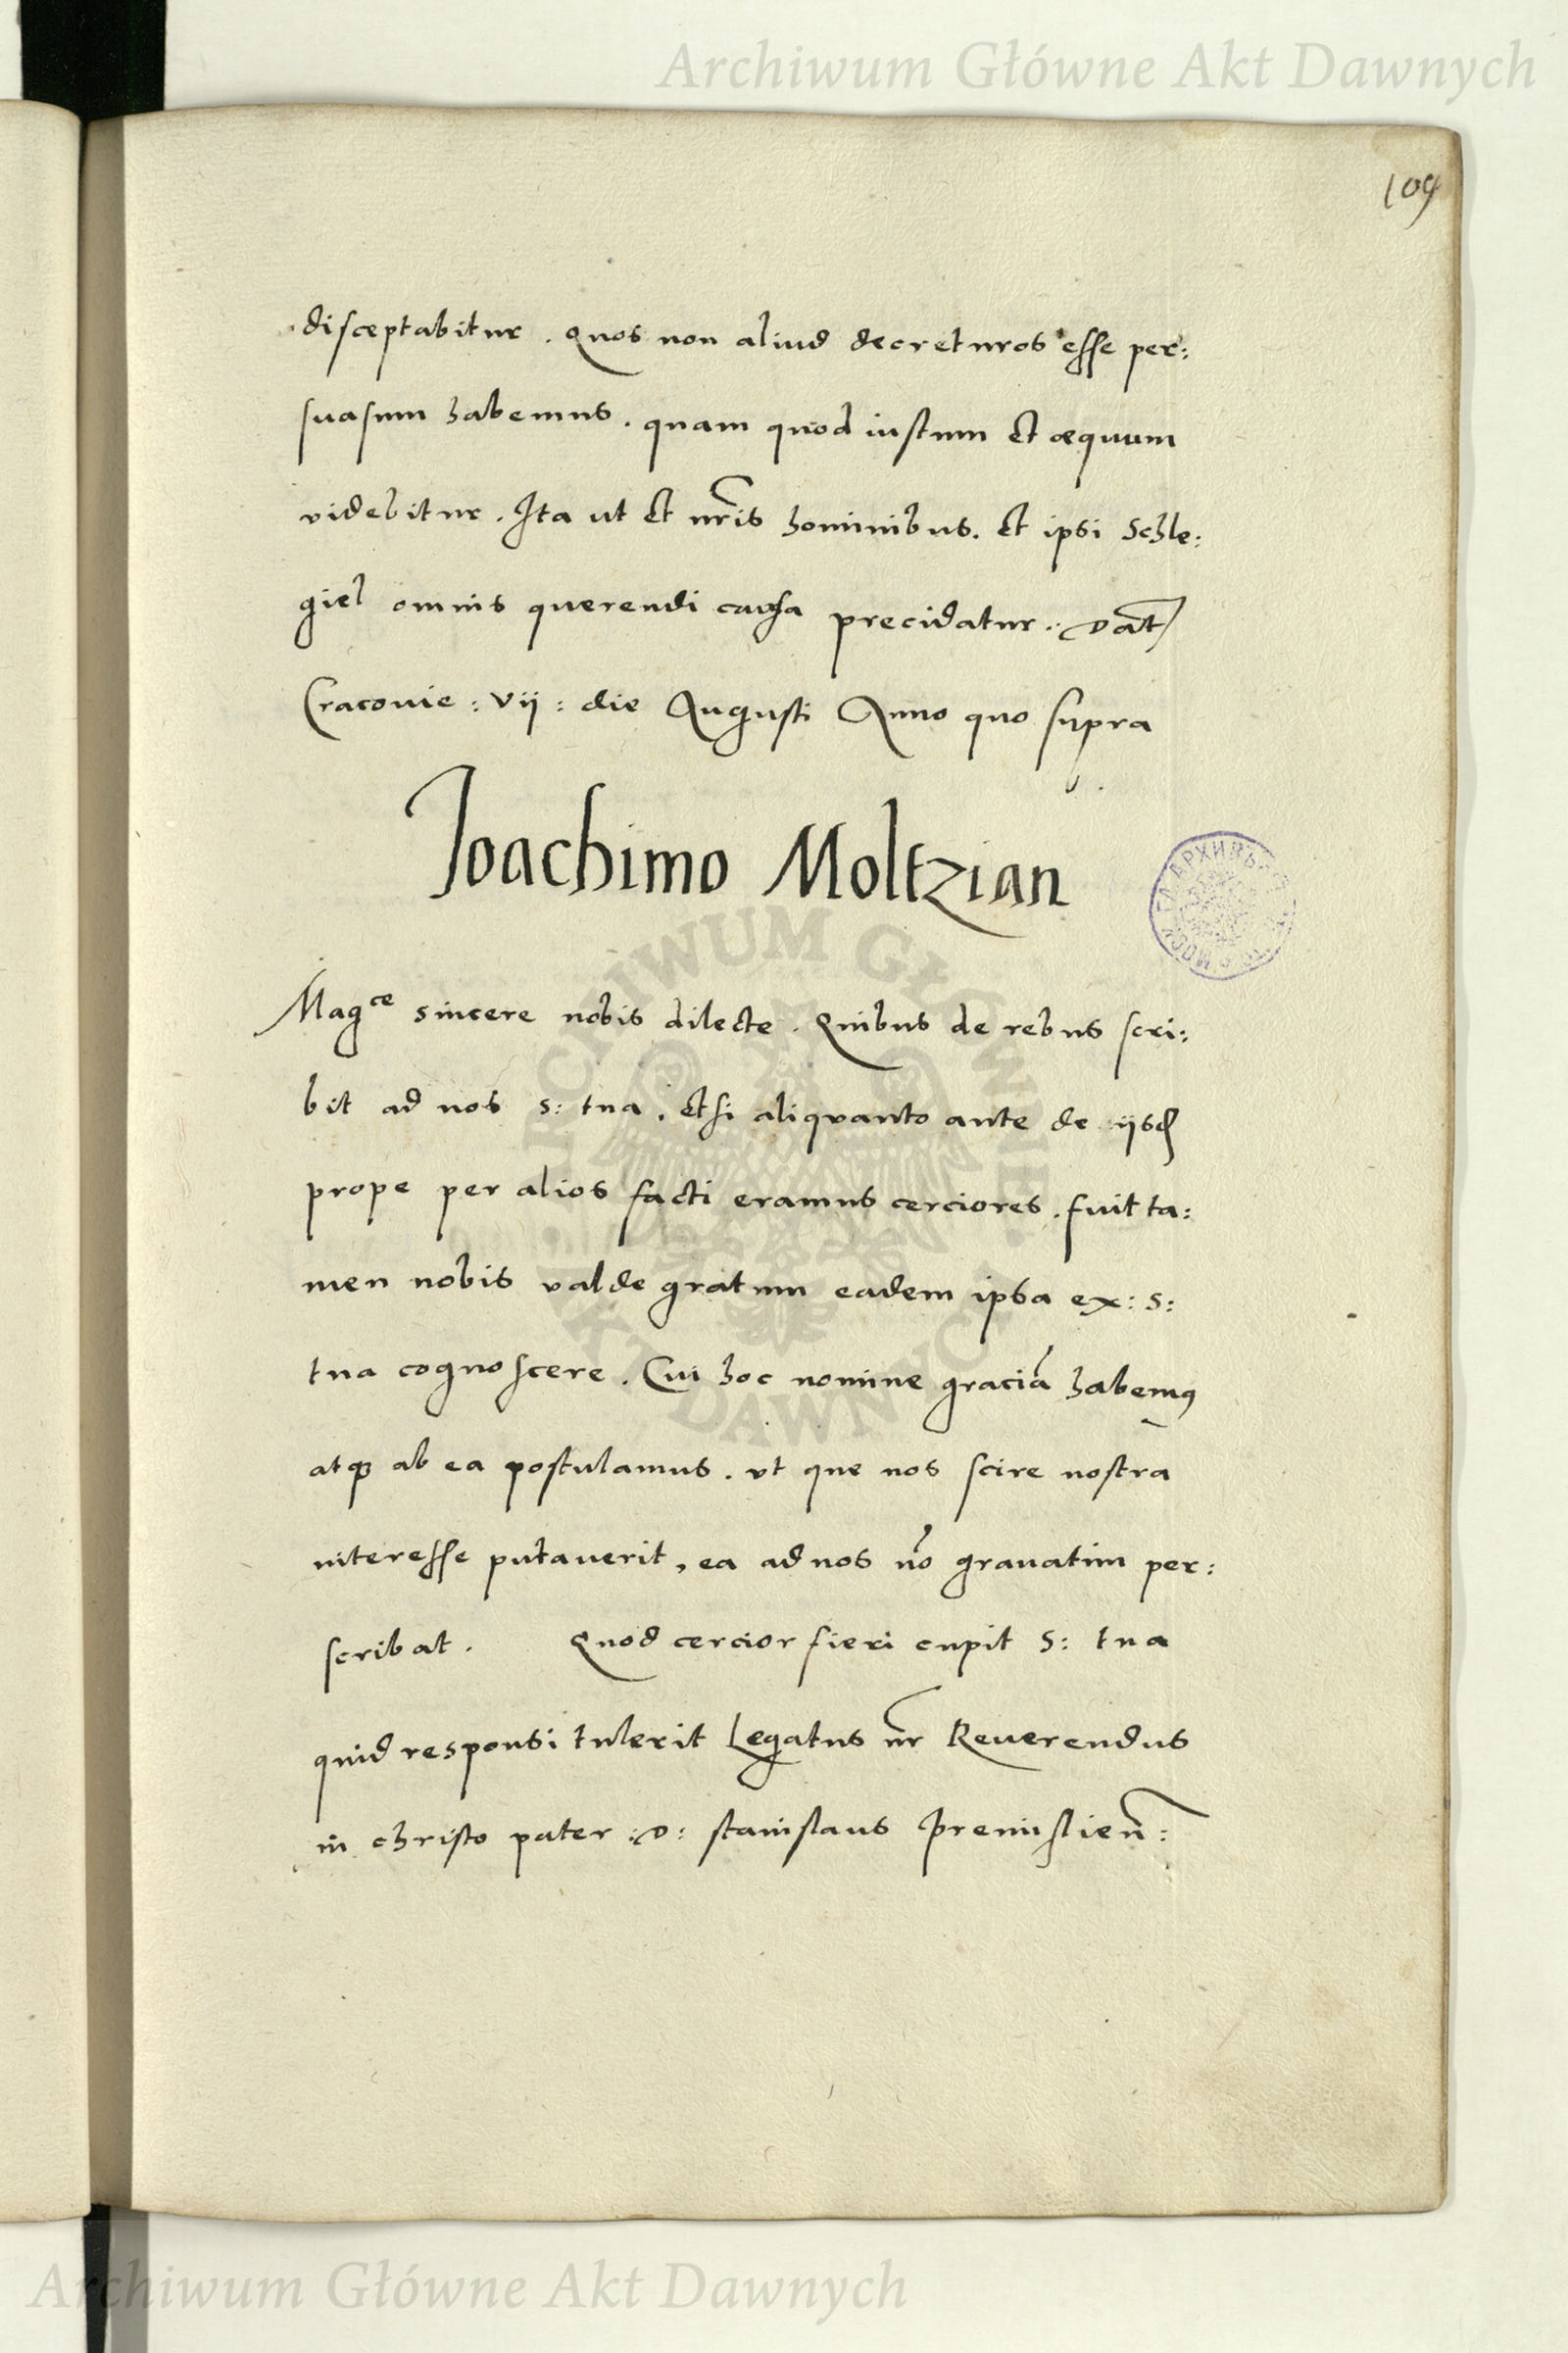 Archiwum Główne Akt Dawnych
109
disceptabitur . Quos non aliud decreturos esse per:
suasum habemus . quam quod iustum et æquum
videbitur . Ita ut et nr̃is hominibus . et ipsi Schle:
giel omnis querendi causa precidatur . Dat̃
Cracouie : vij : die Augusti Anno quo supra
Ioachimo Moltzian
Mag^ce sincere nobis dilecte . Quibus de rebus scri:
bit ad nos S: tua . etsi aliquanto ante de ijsd
prope per alios facti eramus cerciores . fuit ta:
men nobis valde gratum eadem ipsa ex : S:
tua cognoscere . Cui hoc nomine graciã habemꝰ
atqꝫ ab ea postulamus . vt que nos scire nostra
interesse putauerit , ea ad nos nõ grauatim per:
scribat . Quod cercior fieri cupit S: tua
quid responsi tulerit Legatus nr̃ Reuerendus
in christo pater : D: Stanislaus Premislien̄ :
ARCHIWUM GŁÓWNE
AKT DAWNYCH
Archiwum Główne Akt Dawnych